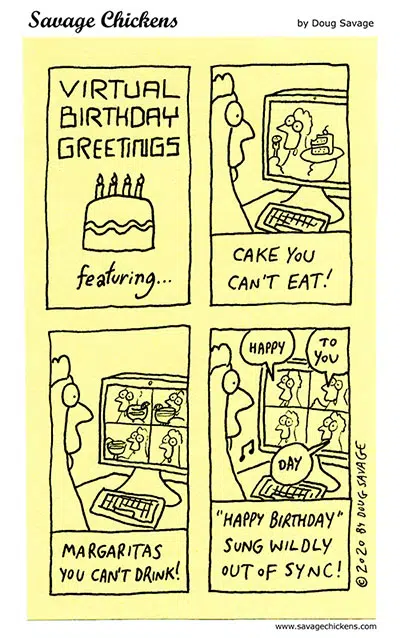 Savage Chickens
by Doug Savage
VIRTUAL
BIRTHDAY
GREETINGS
featuring...
CAKE YOU
CAN'T EAT!
MARGARITAS
YOU CAN'T DRINK!
HAPPY
TO
YOU
DAY
"HAPPY BIRTHDAY"
SUNG WILDLY
OUT OF SYNC!
© 2020 BY DOUG SAVAGE
www.savagechickens.com